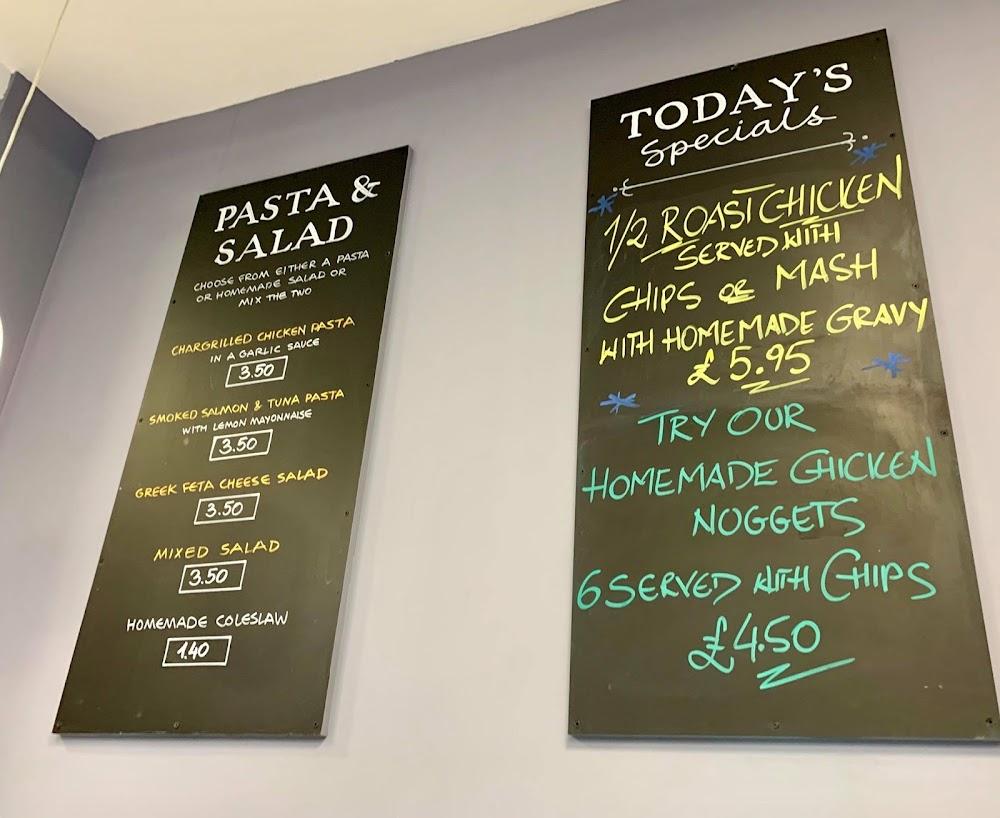 PASTA &
SALAD
CHOOSE FROM EITHER A PASTA
OR HOMEMADE SALAD OR
MIX THE TWO
CHARGRILLED CHICKEN PASTA
IN A GARLIC SAUCE
3.50
SMOKED SALMON & TUNA PASTA
WITH LEMON MAYONNAISE
3.50
GREEK FETA CHEESE SALAD
3.50
MIXED SALAD
3.50
HOMEMADE COLESLAW
1.40
TODAY'S
Specials
1/2 ROAST CHICKEN
SERVED WITH
CHIPS OR MASH
WITH HOMEMADE GRAVY
£5.95
TRY OUR
HOMEMADE CHICKEN
NOGGETS
6 SERVED WITH CHIPS
£4.50